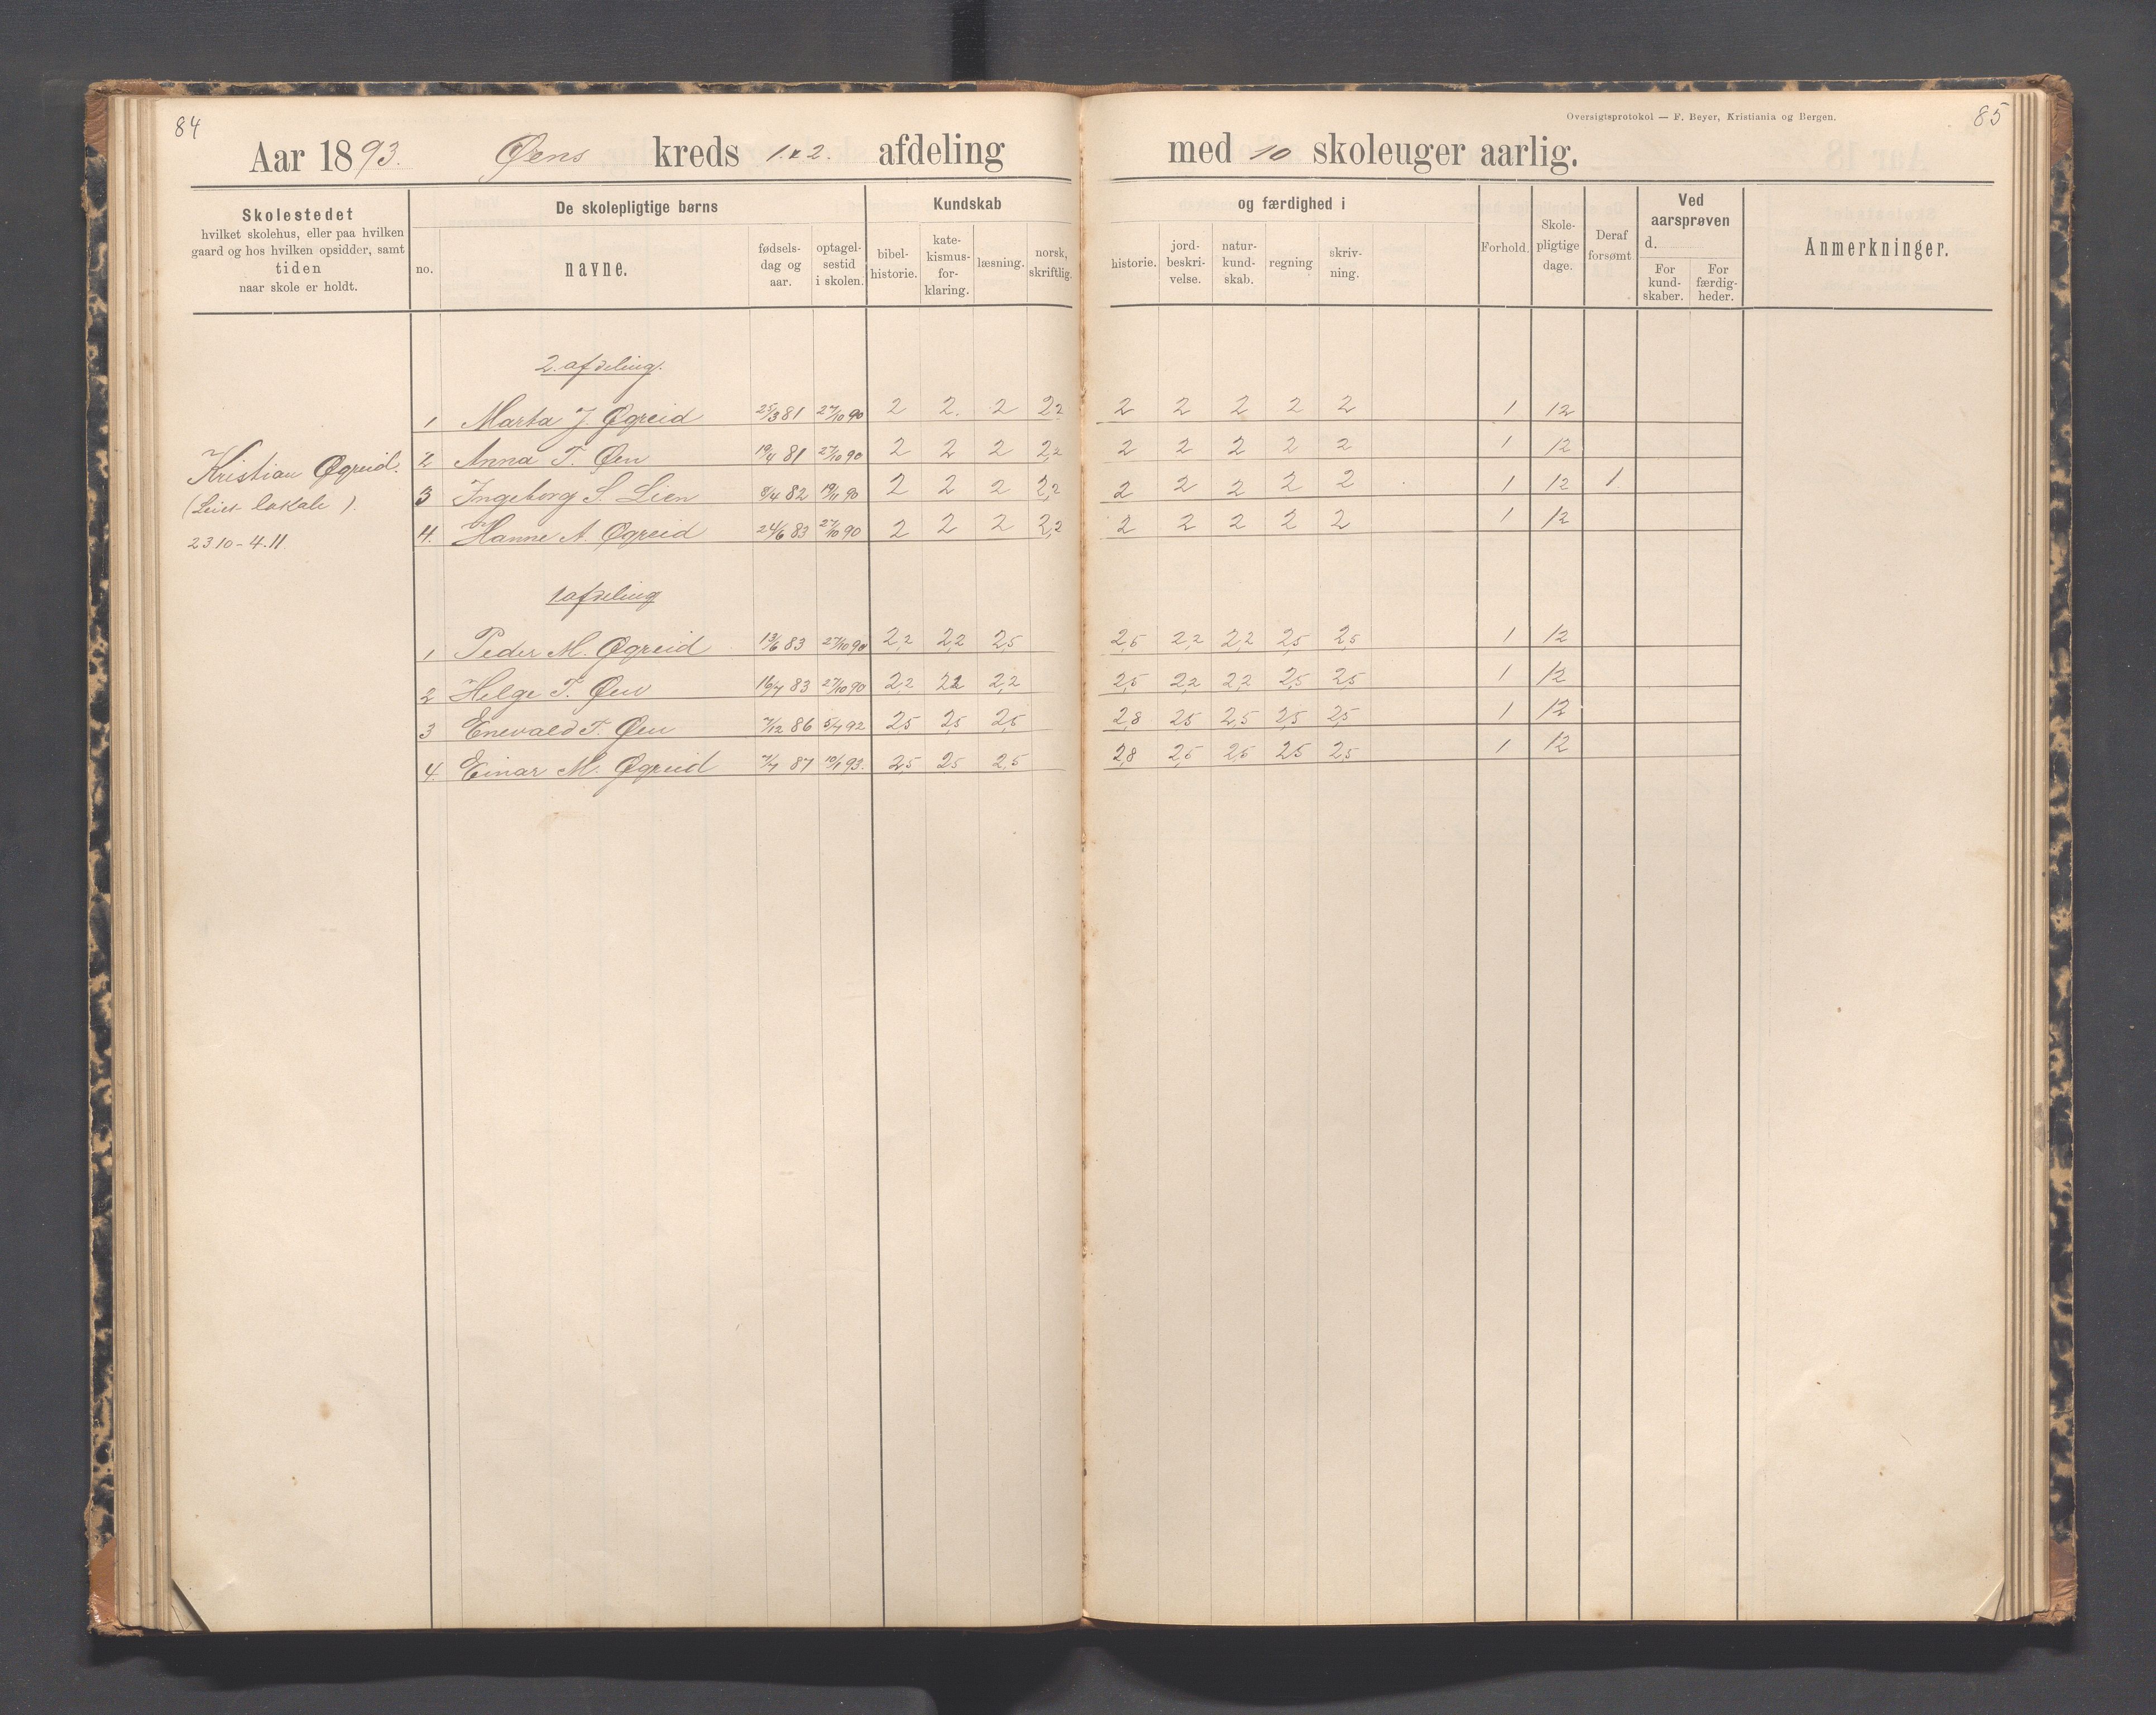 84
Oversigtsprotokol — F. Beyer, Kristiania og Bergen.
85
Aar 1893. Øens kreds 1. & 2. afdeling med 10 skoleuger aarlig.
Skolestedet
hvilket skolehus, eller paa hvilken
gaard og hos hvilken opsidder, samt
tiden
naar skole er holdt.
De skolepligtige børns
no.
navne.
fødsels-
dag og
aar.
optagel-
sestid
i skolen.
Kundskab og færdighed i
bibel-
historie.
kate-
kismus-
for-
klaring.
læsning.
norsk,
skriftlig.
historie.
jord-
beskri-
velse.
natur-
kund-
skab.
regning
skriv-
ning.
Forhold.
Skole-
pligtige
dage.
Deraf
forsømt
Ved
aarsprøven
d.
For
kund-
skaber.
For
færdig-
heder.
Anmerkninger.
2. afdeling.
1 Marta J. Øgreid 25/3 81 27/10 90 2 2. 2 2,2 2 2 2 2 2 1 12
Kristian Øgreid.
(Leiet lokale).
23.10-4.11
2 Anna T. Øen 19/4 81 27/10 90 2 2 2 2,2 2 2 2 2 2 1 12
3 Ingeborg S. Lien 8/4 82 19/11 90 2 2 2 2,2 2 2 2 2 2 1 12 1.
4. Hanne A. Øgreid 24/6 83 27/10 90 2 2 2 2,2 2 2 2 2 2 1 12
1 afdeling
1 Peder M. Øgreid 13/6 83 27/10 90 2,2 2,2 2,5 2,5 2,2 2,2 2,5 2,5 1 12
2 Helge T. Øen 16/7 83 27/10 90 2,2 2,2 2,2 2,5 2,2 2,2 2,5 2,5 1 12
3 Enevald T. Øen 7/12 86 5/7 92 2,5 2,5 2,5 2,8 2,5 2,5 2,5 2,5 1 12
4. Einar M. Øgreid 7/7 87 10/1 93. 2,5 2,5 2,5 2,8 2,5 2,5 2,5 2,5 1 12